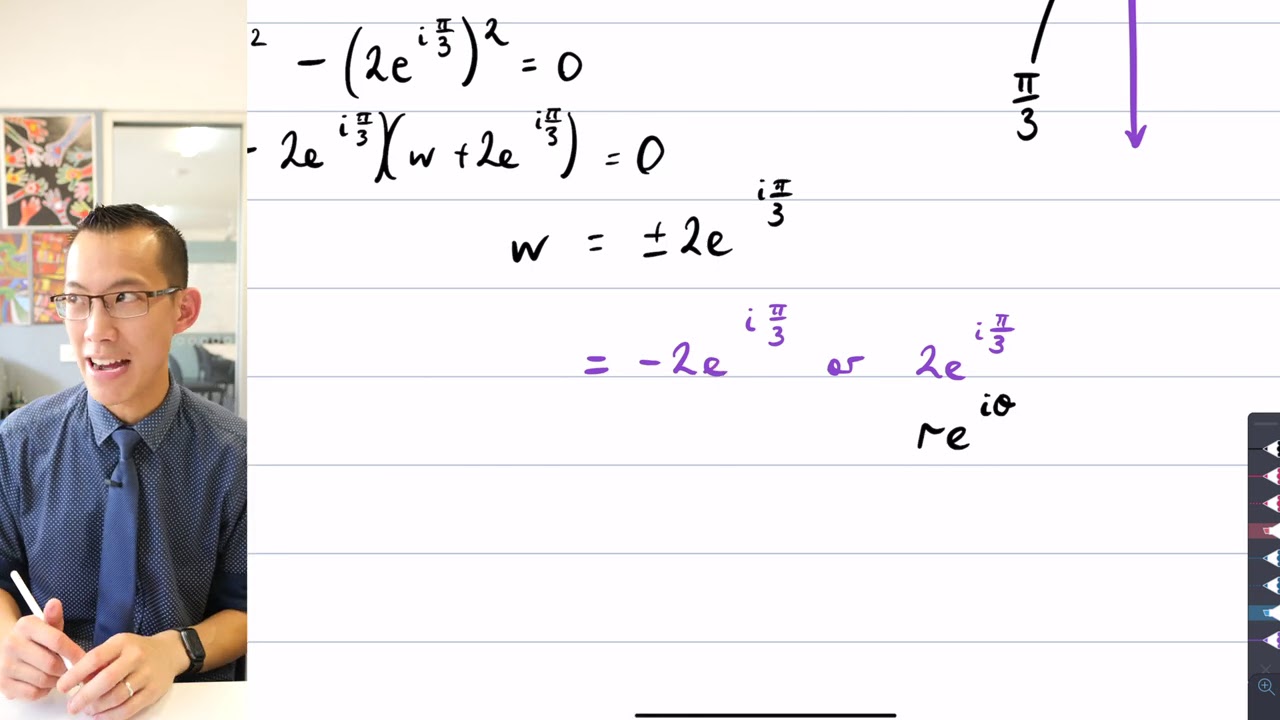 ² − (2e^{iπ/3})² = 0
- 2e^{iπ/3})(w + 2e^{iπ/3}) = 0
π/3
w = ±2e^{iπ/3}
= −2e^{iπ/3} or 2e^{iπ/3}
re^{iθ}